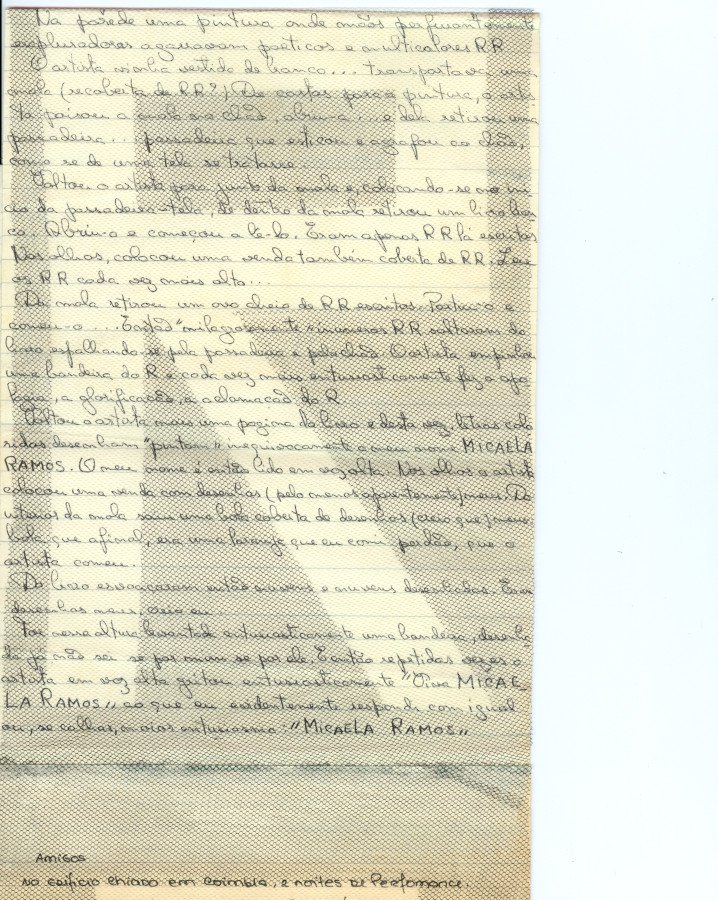 Na parede uma pintura onde mãos perfurantemente
exploradores agarravam poéticos e multicolores RR
O artista vinha vestido de branco... transportava uma
mala (recoberta de RR?) De costas para a pintura, o artis
ta poisou a mala no chão, abriu-a... e dela retirou uma
passadeira... passadeira que esticou e agrafou ao chão,
como se de uma tela se tratasse.
Voltou o artista para junto da mala e, colocando-se no iní
cio da passadeira-tela, de dentro da mala retirou um livro bran
co. Abriu-o e começou a lê-lo. Eram apenas RR lá escritos
Nos olhos, colocou uma venda também coberta de RR. Leu
os RR cada vez mais alto...
Da mala retirou um ovo cheio de RR escritos. Partiu-o e
comeu-o... Então "milagrosamente" inumeros RR saltaram do
livro espalhando-se pela passadeira e pelo chão. O artista empunhou
uma bandeira do R e cada vez mais entusiasticamente fez a apo
logia, a glorificação, a aclamação do R
Voltou o artista mais uma pagina do livro e desta vez, letras colo
ridas desenham "pintam" inequivocamente o meu nome MICAELA
RAMOS. O meu nome é então lido em voz alta. Nos olhos o artista
colocou uma venda com desenhos (pelo menos aparentemente) meus. Do
interior da mala saiu uma bola coberta de desenhos (creio que) meus
bola que afinal, era uma laranja que eu comi perdão, que o
artista comeu.
Do livro esvoaçaram então nuvens e nuvens desenhadas. Eram
desenhos meus, creio eu.
Foi nessa altura levantada entusiasticamente uma bandeira, desenha
da já não sei se por mim se por ele. Então repetidas vezes o
artista em voz alta gritou entusiasticamente "Viva MICAE
LA RAMOS" ao que eu evidentemente respondi com igual
ou, se calhar, maior entusiasmo: "MICAELA RAMOS"
Amigos
No edificio Chiado em Coimbra, 2 noites de Perfomance.